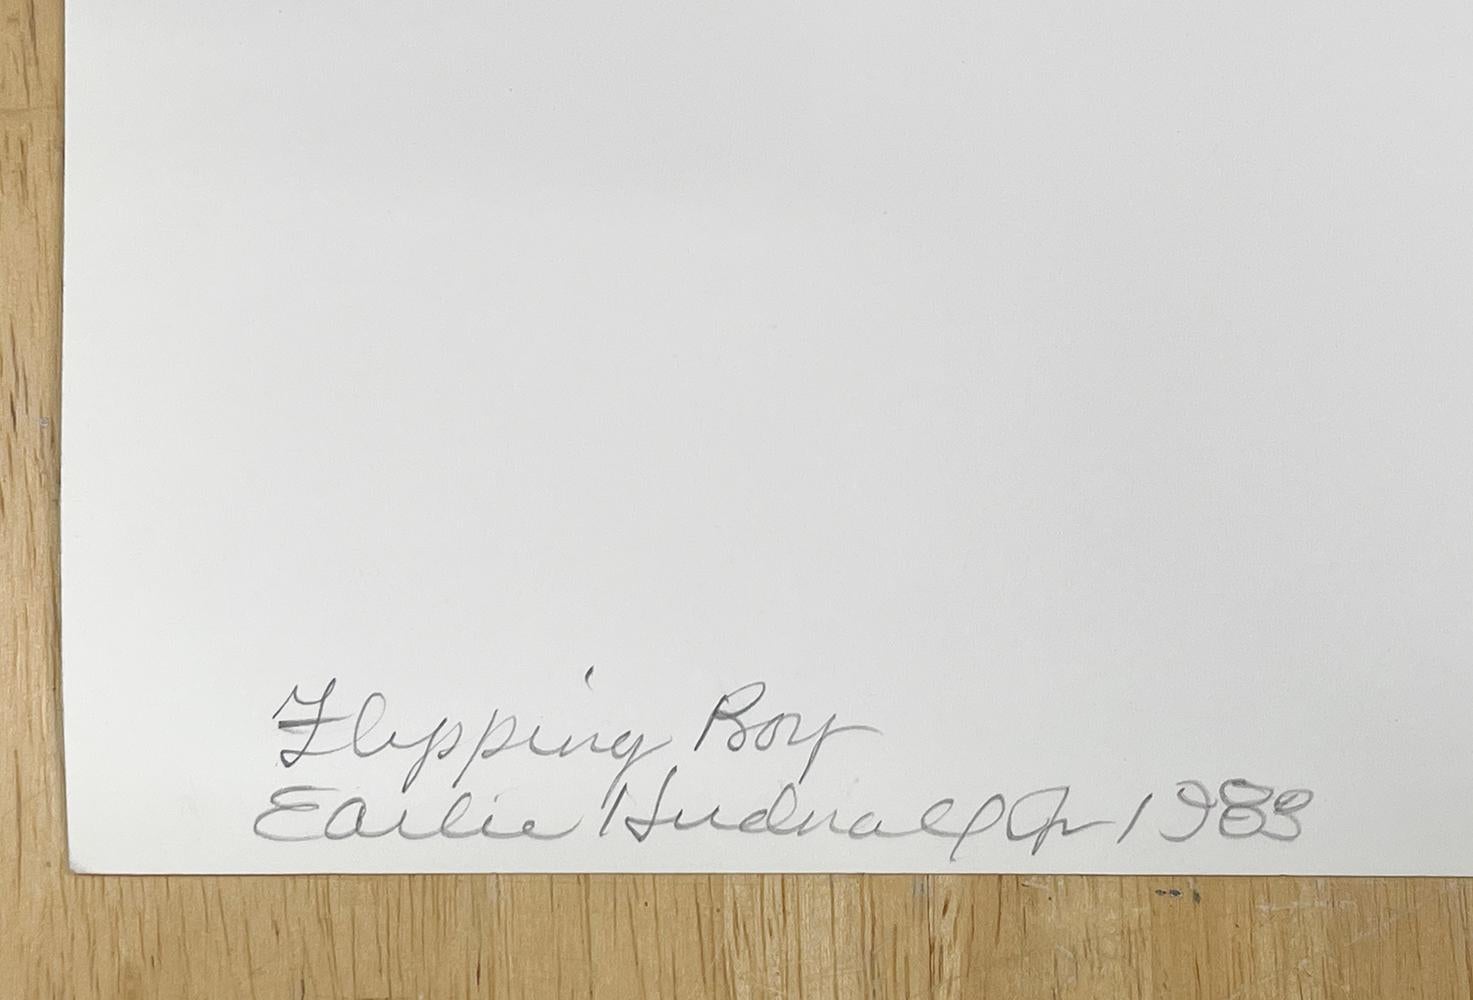 Flipping Boy
Earlie Hudnall Jr 1983